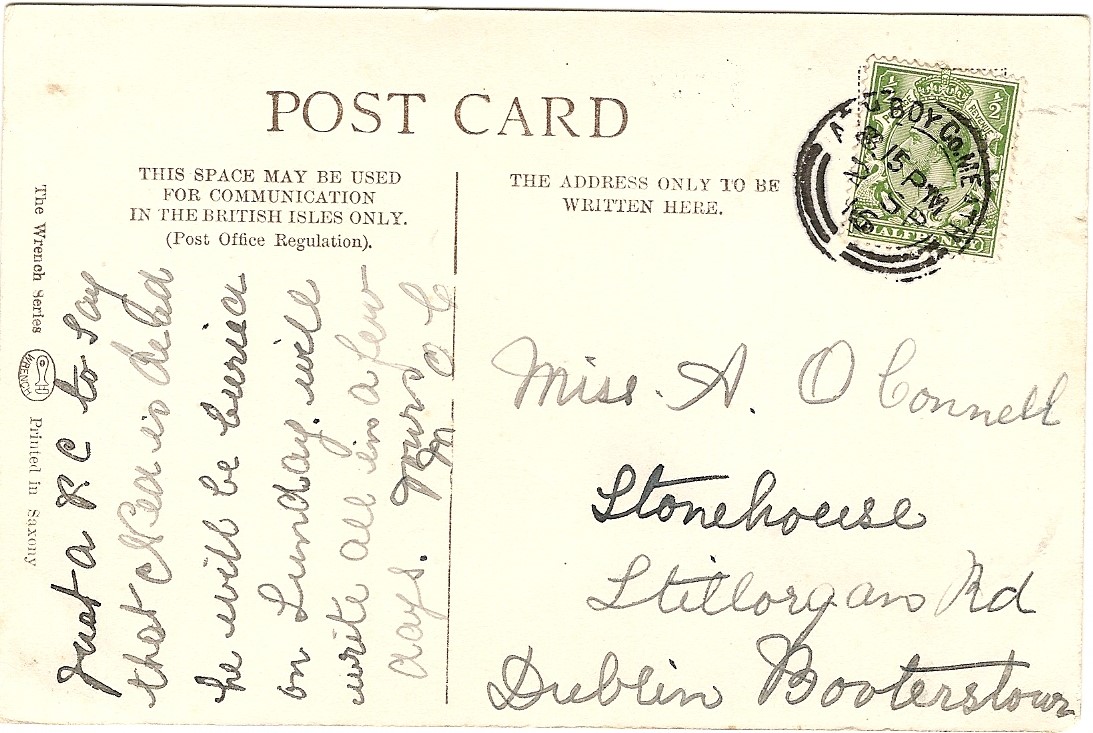 POST CARD
THIS SPACE MAY BE USED
FOR COMMUNICATION
IN THE BRITISH ISLES ONLY.
(Post Office Regulation).
THE ADDRESS ONLY TO BE
WRITTEN HERE.
The Wrench Series
WRENCH
Printed in Saxony
Just a P.C to say
that is dead
he will be buried
on Sunday. will
write all in a few
days. Yours
M O C
Miss. A. O Connell
Stonehouse
Stillorgan Rd
Dublin Booterstown
BOY Co. MEATH
15 PM
SP
REVENUE
½
HALFPENNY